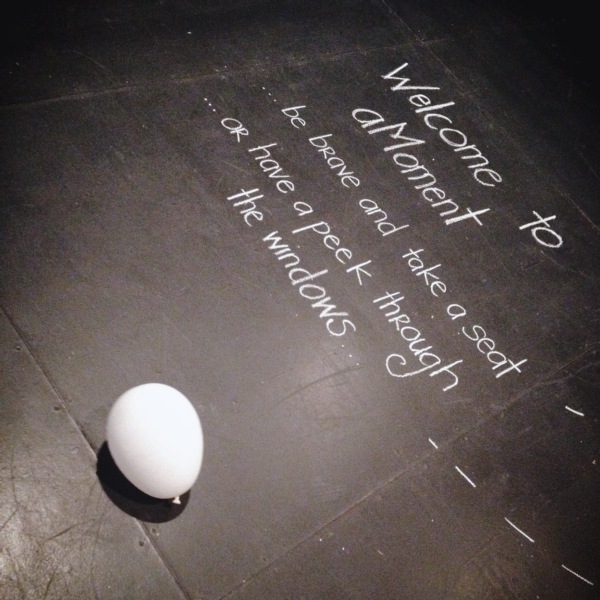 Welcome to
aMoment
...be brave and take a seat
...or have a peek through
the windows...